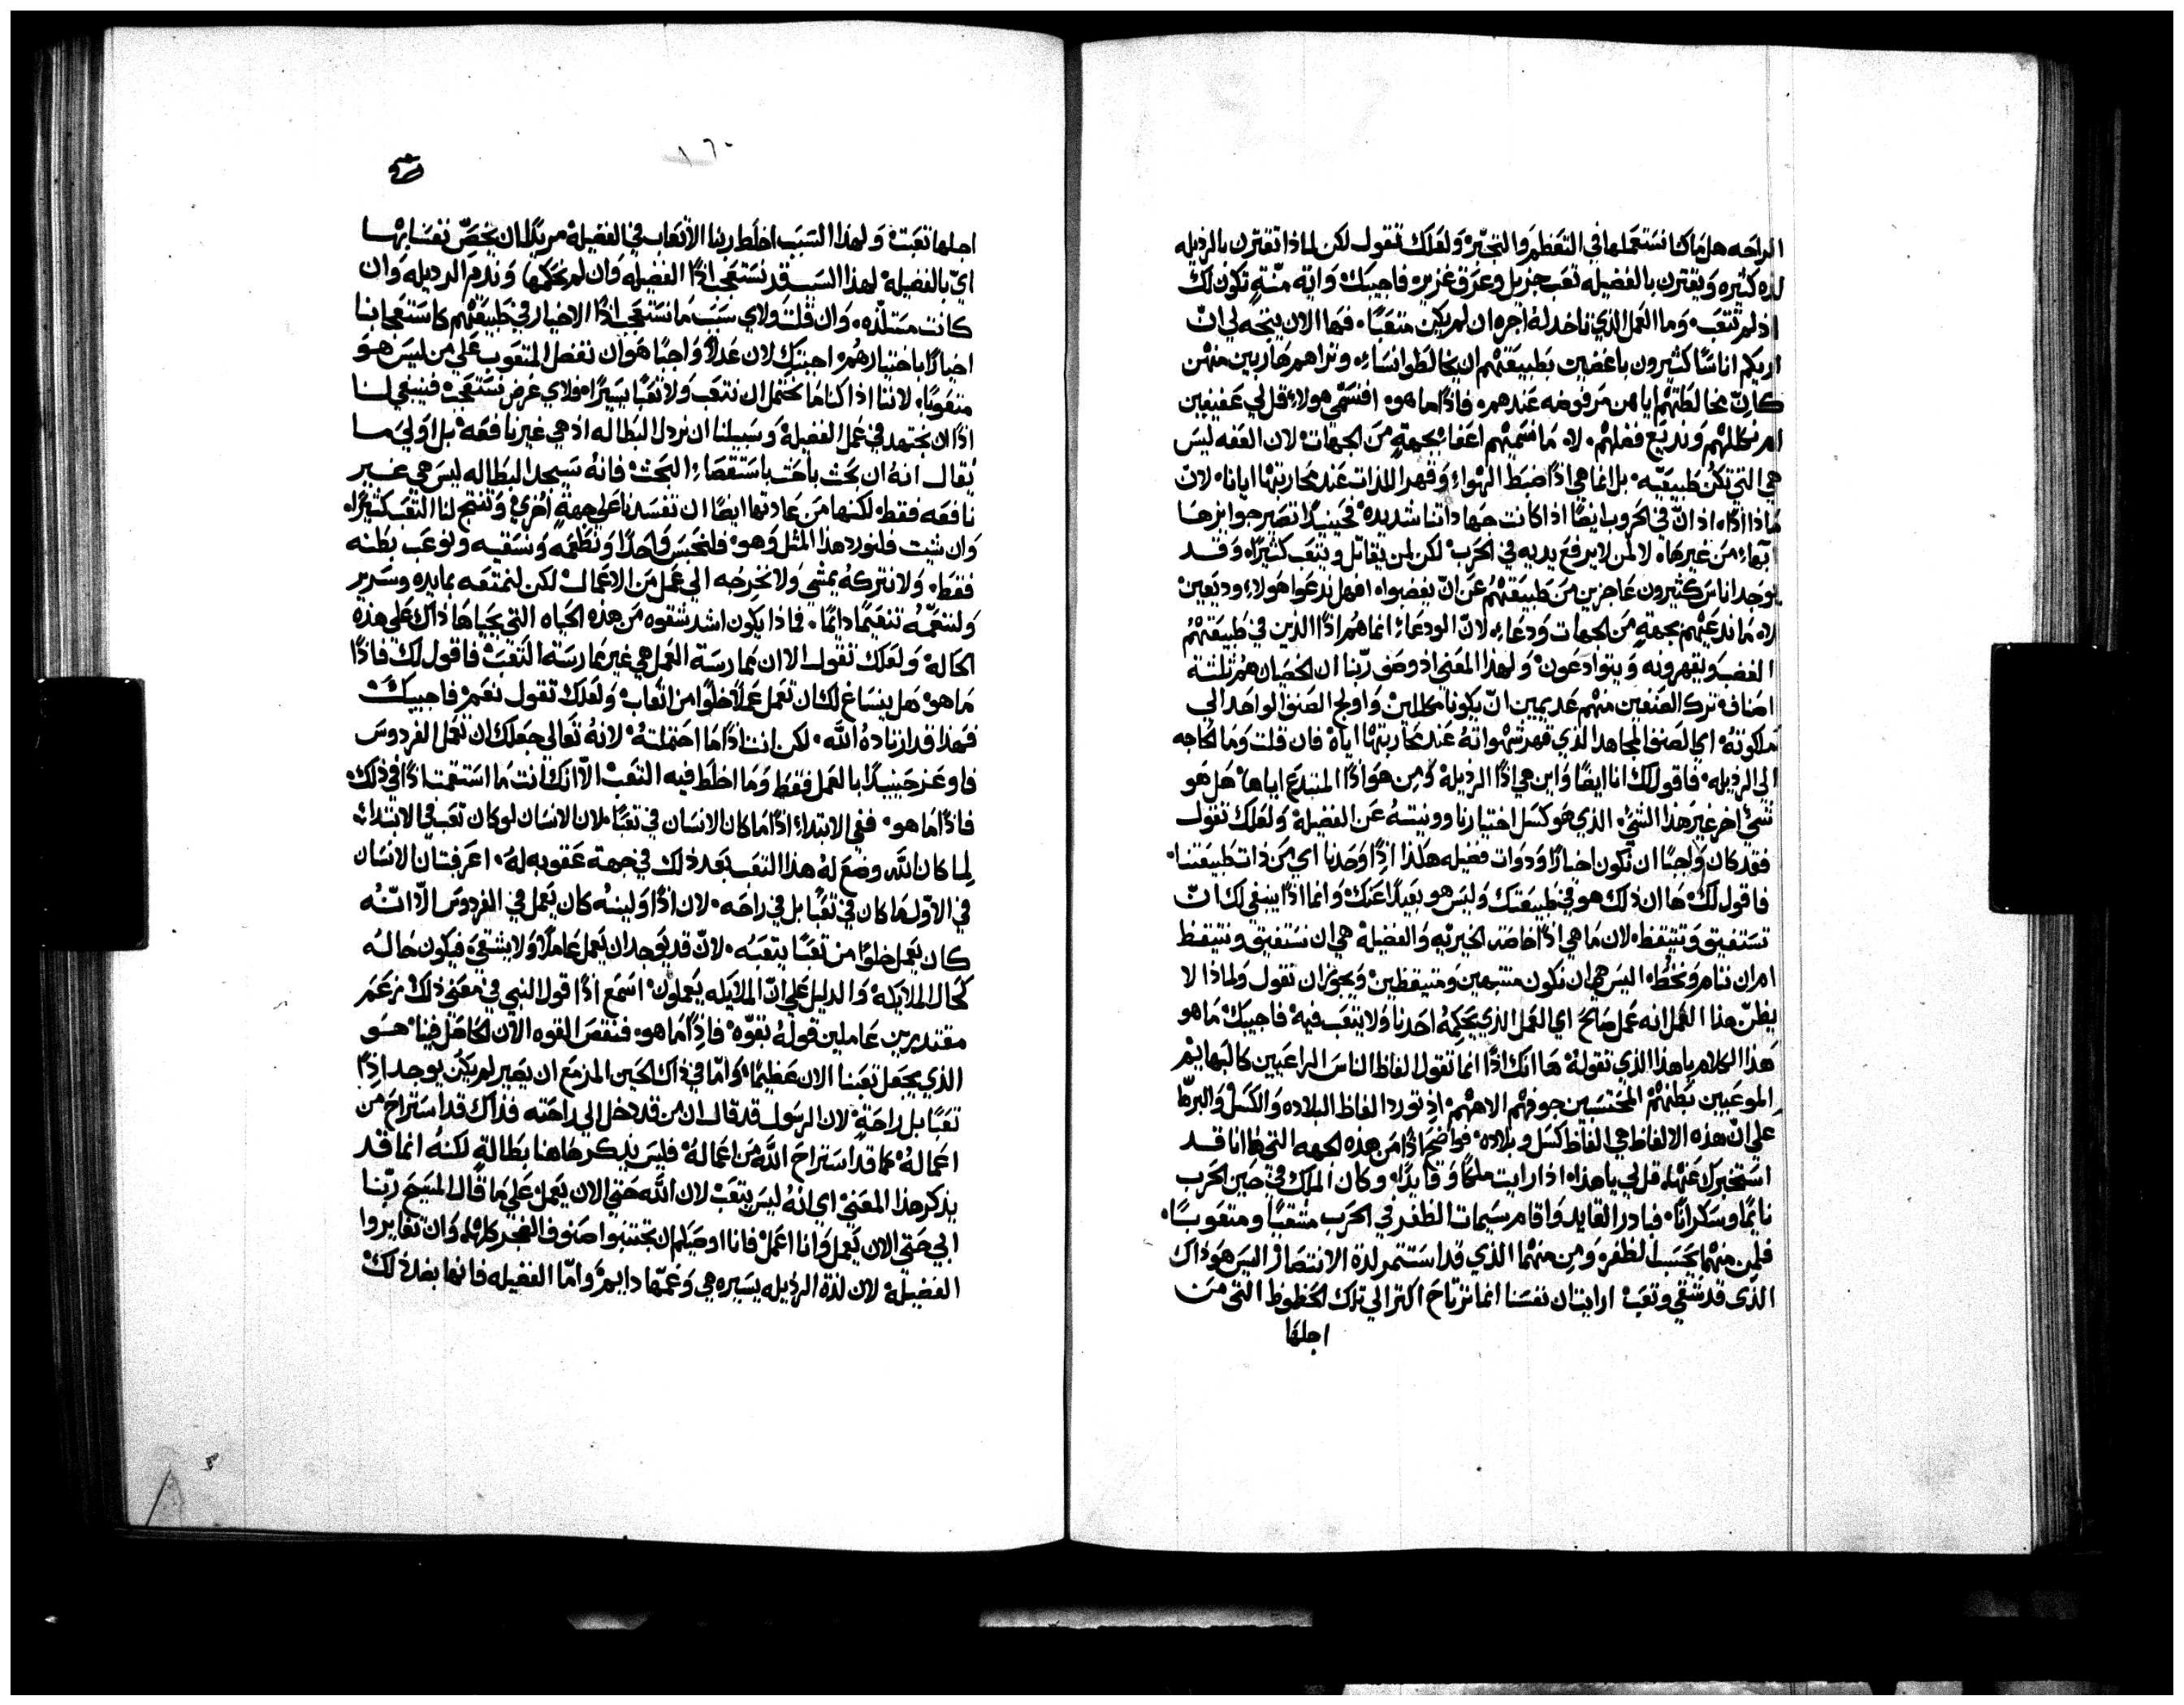 الراحه هل ما كنا نستعملها في التعظم والتجبّر ولعلك تقول لكن لماذا تقترن بالرذيله
لذه كثيره ويقترن بالفضيله تعب جزيل وعرق غزير فاجيبك وايّة منّةٍ تكون لك
اذ لم تتعب وما العمل الذي تاخذ له اجره ان لم يكن متعبًا فها الان يتجه لي انّ
اريكم اناسًا كثيرون باغضين بطبيعتهم ان يخالطوا نساء ونراهم هاربين منهن
كانّ مخالطتهم اياهن مرفوضه عندهم فاذًا ما هو افنسمّي هولاء قل لي عفيفين
ام نكللهم ونديع فضلهم لا ما نسميهم اعفا بجهةٍ من الجهات لان العفه ليس
هي التي تكن طبيعيّه بل انما هي اذًا ضبط الهواء وقهر اللذات عند محاربتها ايانا لانّ
ماذا اذًا اذ انّ في الحروب ايضًا اذا كانت جهاداتنا شديده فحينيذًا تصير جوايزها
ابهاء من غيرها لا لمن لا يرفع يديه في الحرب لكن لمن يقاتل ويتعب كثيرًا وقد
يوجد اناس كثيرون عاجزين من طبيعتهم عن انّ يغضبوا افهل ندعوا هولاء وديعين
لا ما ندعيهم بجهةٍ من الجهات ودعاء لانّ الودعاء انما هم اذًا الذين في طبيعتهم
الغضب ويقهرونه ويتوادعون ولهذا المعني اذ وصف ربّنا ان الخصيان هم ثلثة
اصناف ترك الصنفين منهم عديمين انّ يكونا مكللين واولج الصنف الواحد الي
ملكوته اي الصنف المجاهد الذي قهر شهواته عند محاربتها اياه فان قلت وما الحاجه
الي الرذيله فاقول لك انا ايضًا واين هي اذًا الرذيلة ومن هو اذًا المبتدع اياها هل هو
شيً اخر غير هذا الشيً الذي هو كسل اختيارنا وونيتهُ عن الفضيلة ولعلك تقول
فقد كان واجبًا ان نكون اخيارًا وذوات فضيله هكذا اذًا وحدنا اي من ذات طبيعتنا
فاقول لك ها ان ذلك هو في طبيعتك وليس هو بعيدًا عنك وانما اذًا ينبغي لك انّ
تستفيق وتتيقظ لان ما هي اذًا خاصّة الخيريّه والفضيلة هي ان نستفيق ونتيقظ
ام ان ننام ونخُط اليس هي ان نكون منتبهين ومتيقظين ويجوز ان نقول ولماذا لا
يظنّ هذا العمل انه عمل صالح اي العمل الذي يحكمهُ احدنا ولا يتعب فيه فاجيبك ما هو
هذا الكلام يا هذا الذي تقوله ها انك اذًا انما تقول الفاظ الناس الراغبين كالبهايم
الموعبين بطنهم المحتسبين جوفهم الاههم اذ تورد الفاظ البلاده والكسل والبرهان
علي انّ هذه الالفاظ هي الفاظ كسل وبلاده فواضح اذًا من هذه الجهه التي ها انا قد
استخبرك عنها قل لي يا هذا اذا رايت ملكًا وقايدًا وكان الملك في حين الحرب
نايمًا وسكرانًا فبادر القايد واقام سيمات الظفر في الحرب متعبًا ومتعوبًا
فلمن منهما يحتسب الظفر ومن منهما الذي قد استثمر لذة الانتصار اليس هو ذاك
الذي قد شقي وتعب ارايت ان نفسنا انما ترتاح اكثر الي تلك الحظوظ التي من
اجلها
١٦٠
اجلها تعبت ولهذا السبب اخلط ربنا الاتعاب في الفضيلة مريدًا ان يخصّ نفسنا بها
ايّ بالفضيلة لهذا السبب قد نستعجب اذًا الفضيله وان لم نحكمها وندم الرديله وان
كانت مستلذّه وان قلت ولاي سبب ما نستعجب اذًا الاخيار في طبيعتهم كاستعجابنا
اخيارًا باختيارهم اجبتك لان عدلاً واجبًا هو ان نفضل المتعوب علي من ليس هو
متعوبًا لاننا اذا كنا ما نحتمل ان نتعب ولا تعبًا يسيرًا فلاي غرض نستعجب فينبغي لنا
اذًا ان نجتهد في عمل الفضيلة وسبيلنا ان نرذل البطاله اذ هي غير نافعه بل اولي ما
يقال انه ان بحث باحث باستقصاء البحث فانه سيجد البطاله ليس هي غير
نافعه فقط لكنها من عادتها ايضًا ان تفسدنا علي جهةٍ اخري وتنتج لنا التعب كثيرًا
وان شيت فلنورد هذا المثل وهو فلنحبس واحدًا ونطعمه ونسقيه ونوعب بطنه
فقط ولا نتركهُ يمشي ولا نخرجه الي عمل من الاعمال لكن لنمتعه بمايده وسرير
ولننعمهُ تنعيمًا دايمًا فماذا يكون اشد شقوه من هذه الحياه التي يحياها ذاك علي هذه
الحالة ولعلك تقول الا ان ممارسة العمل هي غير ممارسة التعب فاقول لك فاذًا
ما هو هل ينساغ لك ان تعمل عملاً خلوًا من اتعاب ولعلك تقول نعم فاجيبك
فهذا قد ارتاده الله لكن انت اذًا ما احتملته لانهُ تعالى جعلك ان تعمل الفردوس
فاوعز حينيذًا بالعمل فقط وما اخلط فيه التعب الّا انك انت ما استقمت اذًا في ذلك
فاذًا ما هو ففي الابتداء اذًا ما كان الانسان في تعبًا لان الانسان لو كان تعب في الابتداء
لما كان اللّه وضع لهُ هذا التعب بعد ذلك في جهة عقوبه لهُ اعرفت ان الانسان
في الاوّل ما كان في تعبًا بل في راحه لان اذًا ولينهُ كان يعمل في الفردوس الّا انّه
كان يعمل خلوًا من تعبًا يتعبه لانّ قد يوجد ان يعمل عاملاً ولا يشقي فيكون حاله
كحال الملايكة والدليل علي انّ الملايكه يعملون اسمع اذًا قول النبي في معني ذلك زعم
مقتدرين عاملين قوله بقوّه فاذًا ما هو فنقص القوه الان الحاصل فينا هو
الذي يجعل تعبنا الان عظيمًا وامّا في ذاك الحين المزمع ان يصير لم يكن يوجد اذًا
تعبًا بل راحةٍ لان الرسول قد قال ان من قد دخل الي راحته فذاك قد استراح من
اعماله كما قد استراح اللّه من اعماله فليس يذكر هاهنا بطالةٍ لكنه انما قد
يذكر هذا المعني اي انه ليس يتعب لان اللّه حتي الان يعمل علي ما قال المسيح ربّنا
ابي حتي الان يعمل وانا اعمل فانا اوصيكم ان تجتنبوا صنوف الضجر كلها وان تغايروا
الفضيلة لان لذة الرذيله يسيره هي وغمّها دايم وامّا الفضيله فانها بعد ذلك